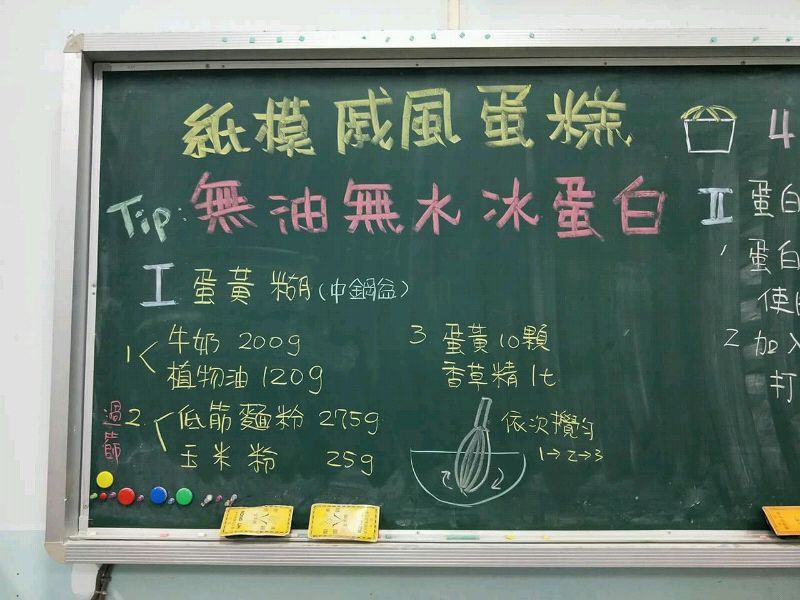 紙模戚風蛋糕
4
Tip: 無油無水冰蛋白
I 蛋黃糊(中鋼盆)
1 牛奶 200g
植物油 120g
過篩
2. 低筋麵粉 275g
玉米粉 25g
3 蛋黃10顆
香草精 1t
依次攪勻
1→2→3
II 蛋白
1 蛋白
使
2 加入
打